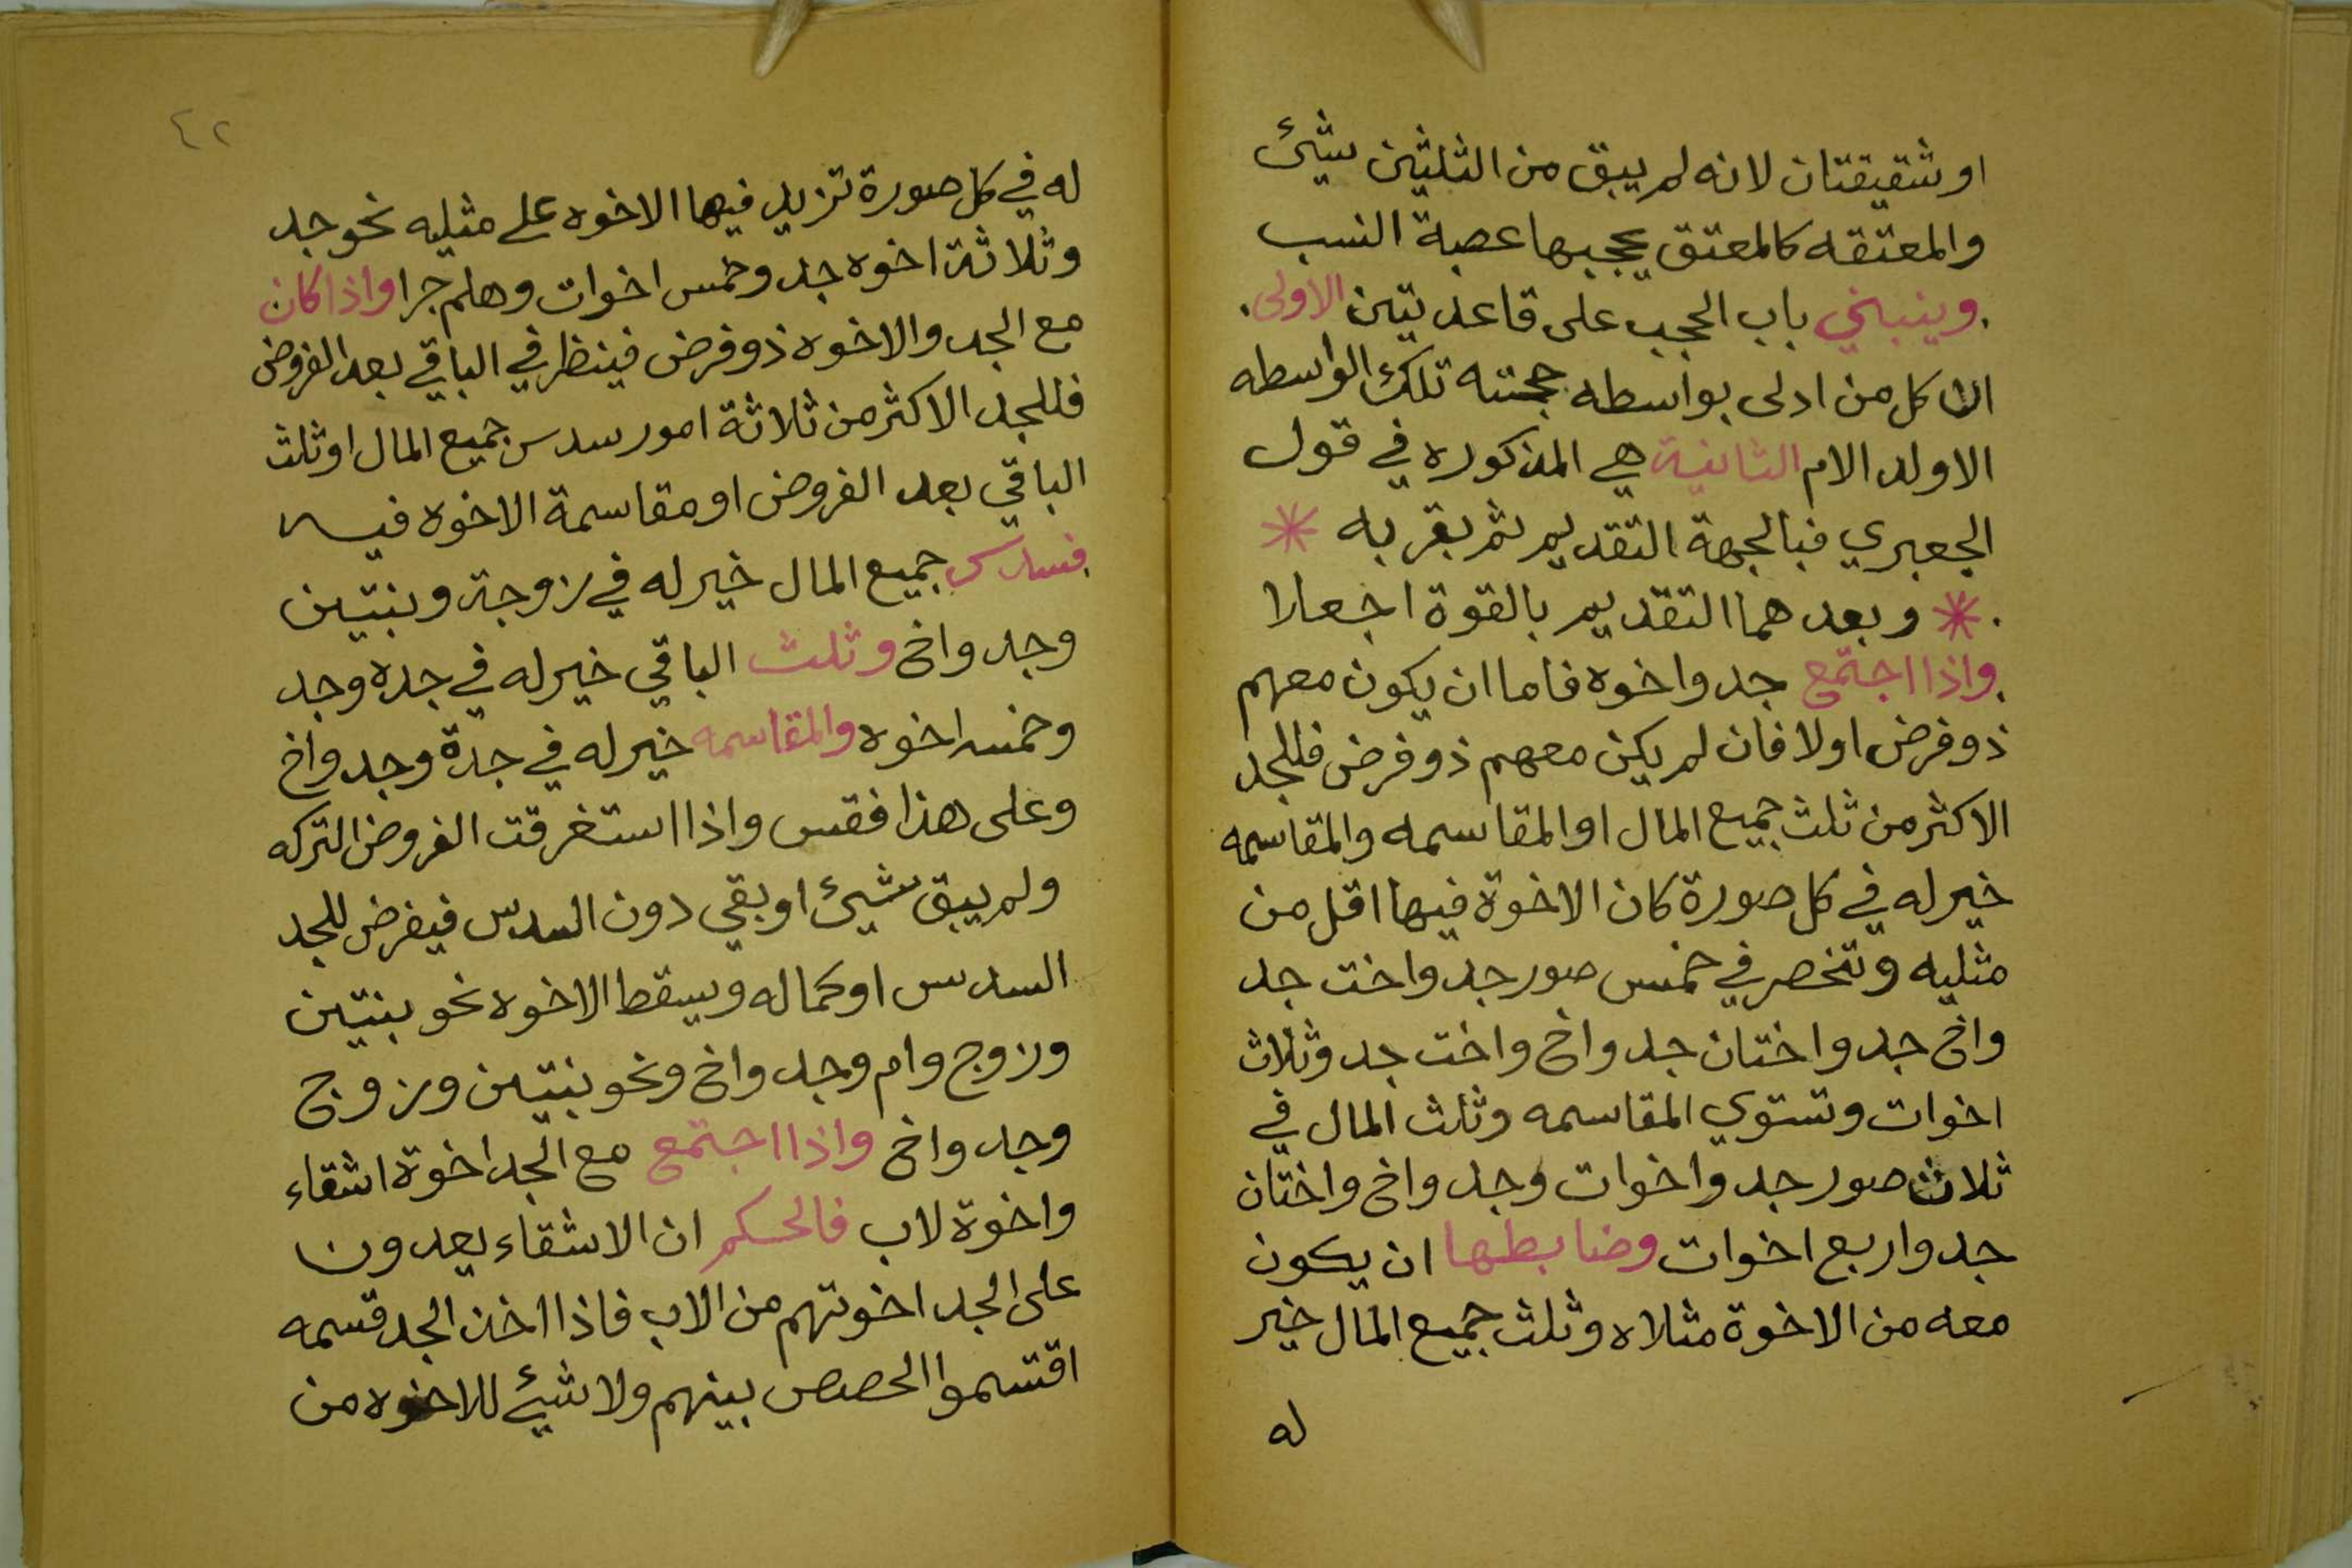 او شقيقتان لانه لم يبق من الثلثين شيئ
والمعتقه كالمعتق يحجبها عصبة النسب
. وينبني باب الحجب على قاعدتين الاولى.
ان كل من ادلى بواسطه حجبته تلك الواسطه
الا ولد الام الثانية هي المذكوره في قول
الجعبري فبالجهة التقديم ثم بقربه *
. * وبعدهما التقديم بالقوة اجعلا
. واذا اجتمع جد واخوه فاما ان يكون معهم
ذو فرض اولا فان لم يكن معهم ذو فرض فللجد
الاكثر من ثلث جميع المال او المقاسمه والمقاسمه
خير له في كل صورة كان الاخوة فيها اقل من
مثليه وتنحصر في خمس صور جد واخت جد
واخ جد واختان جد واخ واخت جد وثلاث
اخوات وتستوي المقاسمه وثلث المال في
ثلاث صور جد واخوات وجد واخ واختان
جد واربع اخوات وضابطها ان يكون
معه من الاخوة مثلاه وثلث جميع المال خير
له
٤٢
له في كل صورة تزيد فيها الاخوه على مثليه نحو جد
وثلاثة اخوه جد وخمس اخوات وهلم جرا واذا كان
مع الجد والاخوه ذو فرض فينظر في الباقي بعد الفروض
فللجد الاكثر من ثلاثة امور سدس جميع المال او ثلث
الباقي بعد الفروض او مقاسمة الاخوه فيه
فسدس جميع المال خير له في زوجة وبنتين
وجد واخ وثلث الباقي خير له في جده وجد
وخمسه اخوه والمقاسمه خير له في جدة وجد واخ
وعلى هذا فقس واذا استغرقت الفروض التركه
ولم يبق شيئ او بقي دون السدس فيفرض للجد
السدس او كماله ويسقط الاخوه نحو بنتين
وزوج وام وجد واخ ونحو بنتين وزوج
وجد واخ واذا اجتمع مع الجد اخوة اشقاء
واخوة لاب فالحكم ان الاشقاء يعدون
على الجد اخوتهم من الاب فاذا اخذ الجد قسمه
اقتسموا الحصص بينهم ولا شيئ للاخوه من